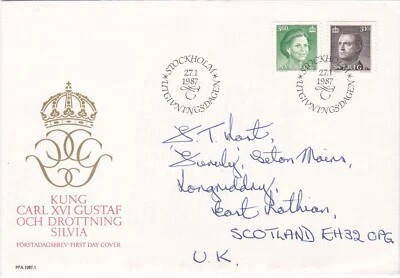 STOCKHOLM
27.1
1987
UTGIVNINGSDAGEN
STOCKHOLM
27.1
1987
UTGIVNINGSDAGEN
KUNG
CARL XVI GUSTAF
OCH DROTTNING
SILVIA
FÖRSTADAGSBREV·FIRST DAY COVER
PFA 1987:1
S. T. Hart,
Seton Mains,
Longniddry,
East Lothian,
SCOTLAND EH32 0PG
U.K.